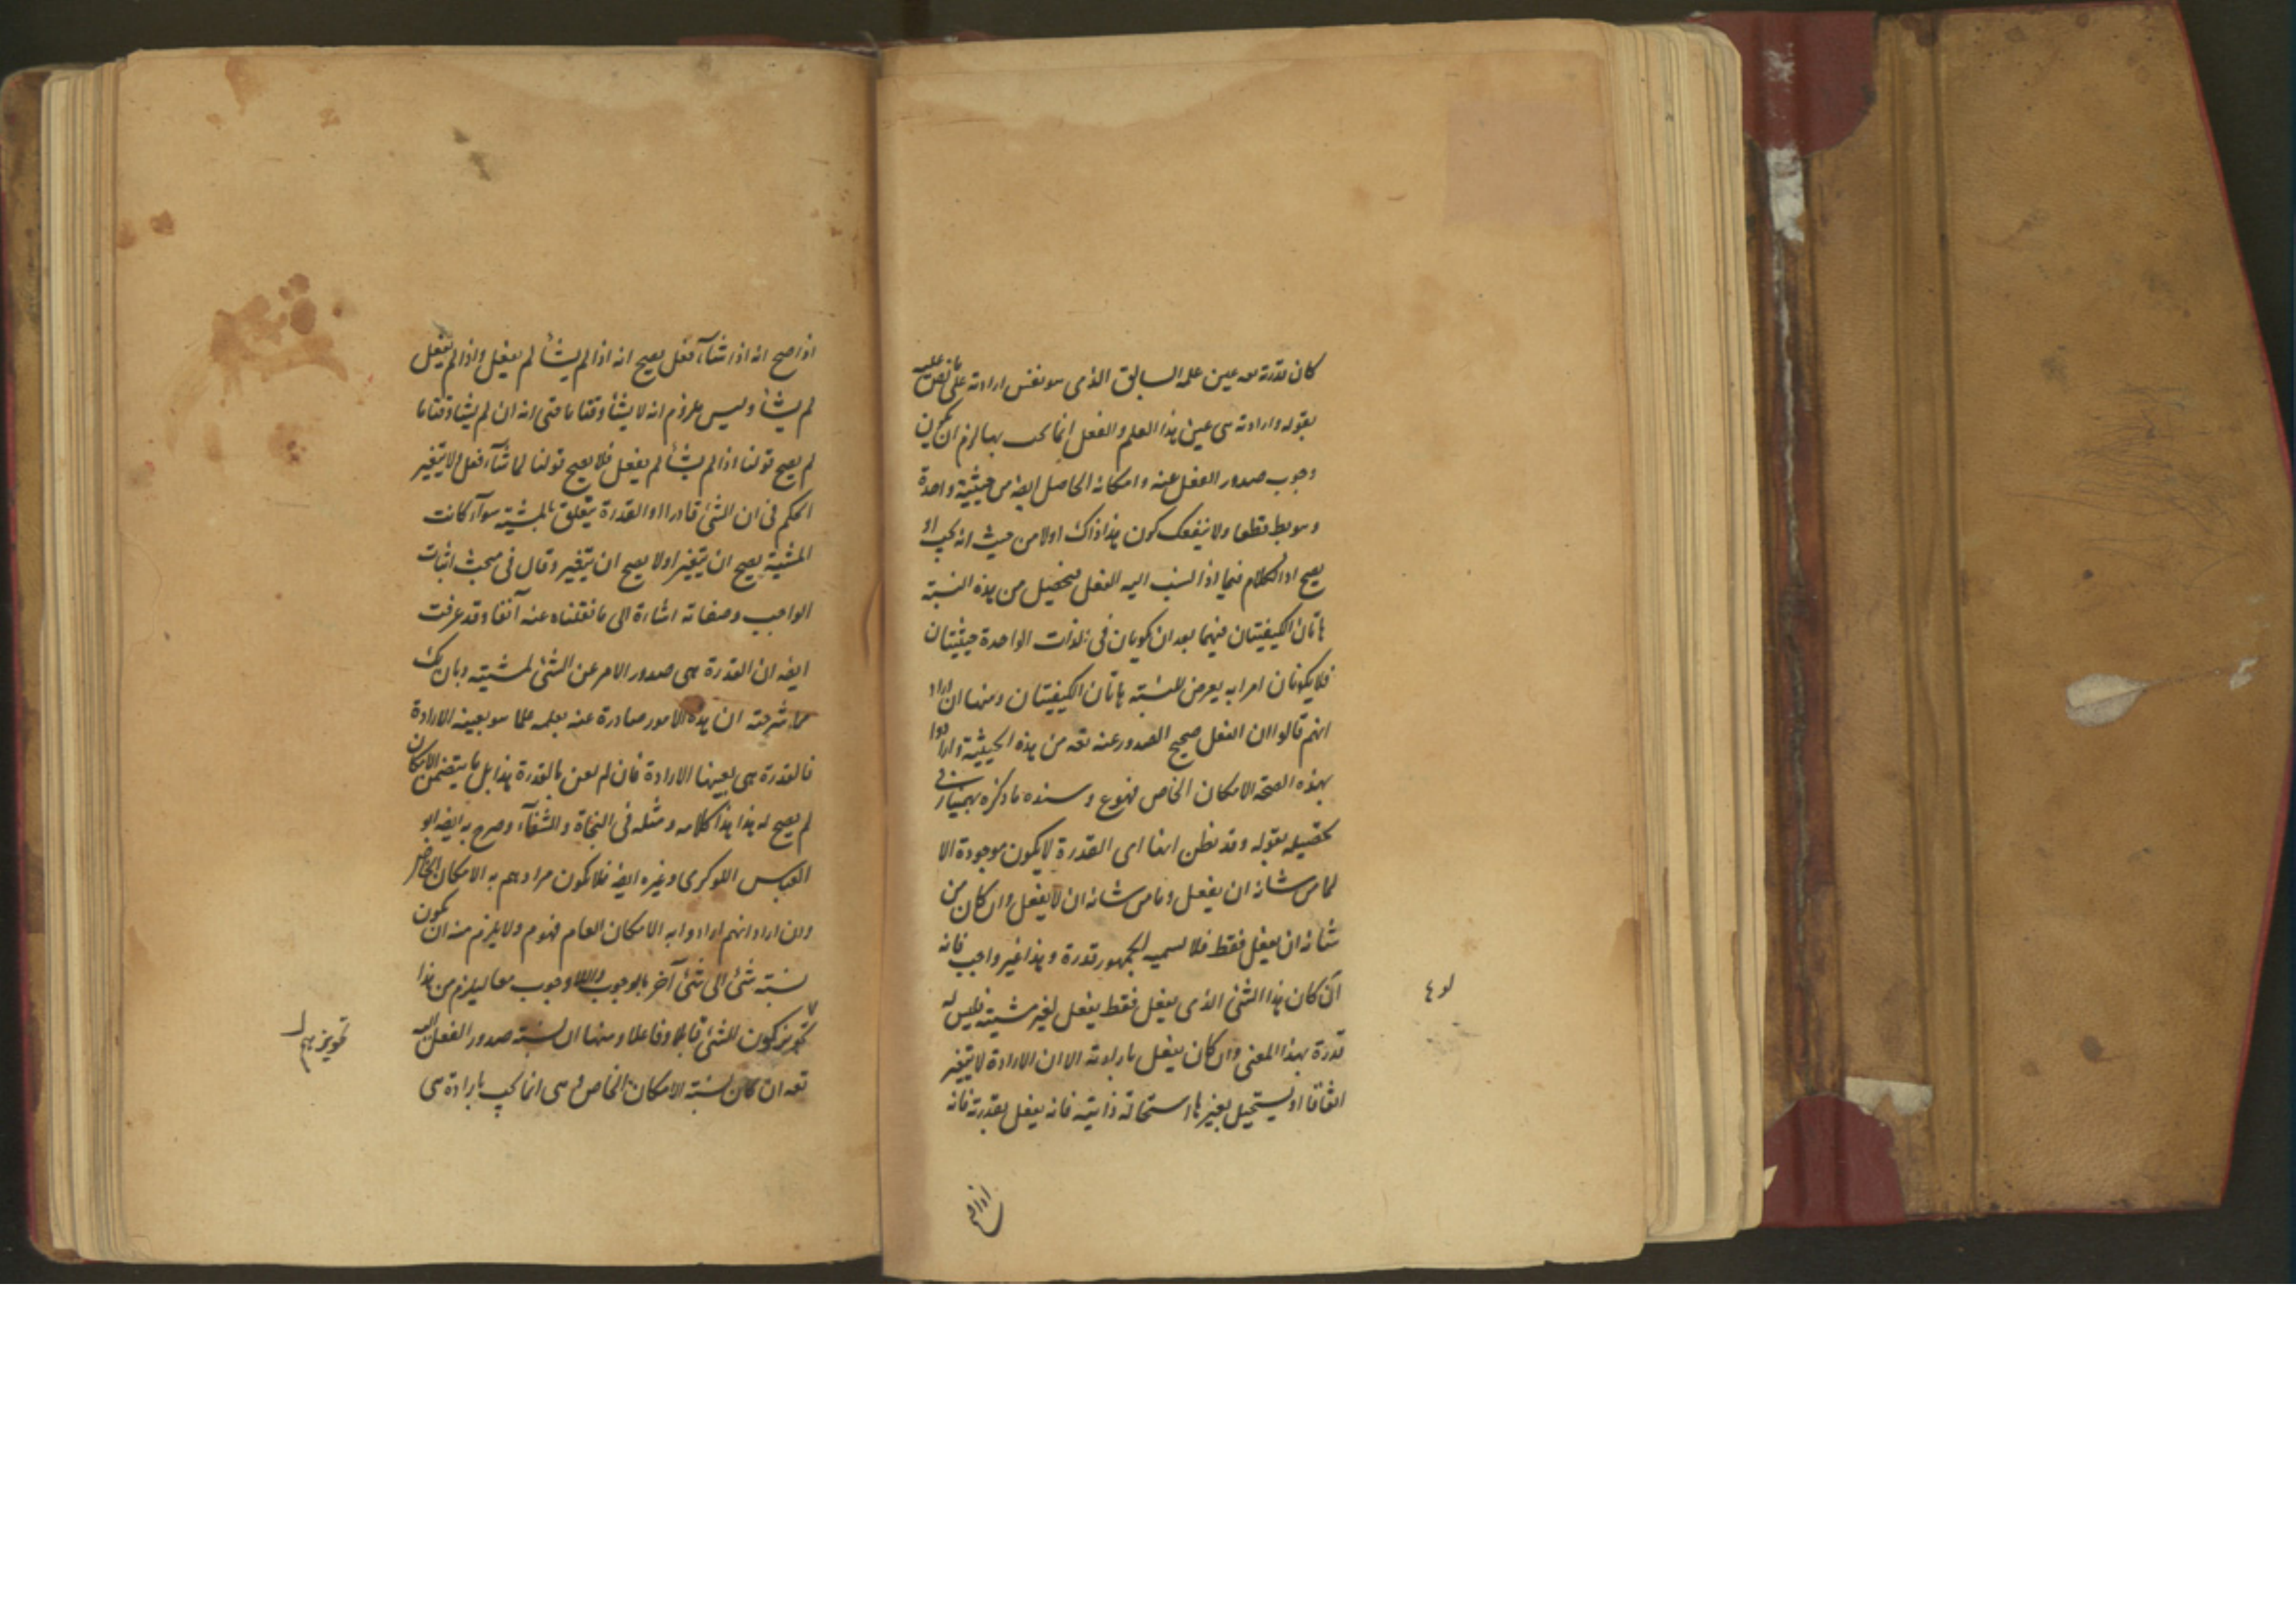 كان قدرته تعه عين علمه السابق الذى هو نفس ارادته على ما نص عليه
بقوله وارادته هى عين هذا العلم والفعل انما يجب بها لزم ان يكون
وجوب صدور الفعل عنه وامكانه الخاص ايضا من حيثية واحدة
وهو بط قطعا ولا ينفعك كون هذا اذ ذاك اولا من حيث انه يجب او
يصح اذ الكلام فيما اذا نسب اليه الفعل فيحصل من هذه النسبة
هاتان الكيفيتان فيهما بعد ان يكونان فى الذات الواحدة حيثيتان
فلا يكونان امرا به يعرض للنسبة هاتان الكيفيتان ومنها ان اراد
انهم قالوا ان الفعل صحيح الصدور عنه تعه من هذه الحيثية وارادوا
بهذه الصحة الامكان الخاص فهو ع وسنده ما ذكره بهمنيار فى
تحصيله بقوله وقد يظن انها اى القدرة لا يكون موجودة الا
لما من شانه ان يفعل وما من شانه ان لا يفعل وان كان من
شانه ان يفعل فقط فلا يسميه الجمهور قدرة وهذا غير واجب فانه
ان كان هذا الشئ الذى يفعل فقط يفعل لغير مشيته فليس له
قدرة بهذا المعنى وان كان يفعل بارادته الا ان الارادة لا يتغير
اتفاقا او يستحيل بغيرها استحالة ذاتية فانه يفعل بقدرته فانه
اذا صح انه اذا شآء فعل يصح انه اذا لم يشأ لم يفعل واذا لم يفعل
لم يشأ وليس يلزم انه لا يشأ وقتا ما حتى انه ان لم يشأ وقتا ما
لم يصح قولنا اذا لم يشأ لم يفعل فلا يصح قولنا لما شآء فعل لا يتغير
الحكم فى ان الشئ قادرا اذ القدرة يتعلق بالمشية سوآء كانت
المشية يصح ان يتغير او لا يصح ان يتغير وقال فى مبحث اثبات
الواجب وصفاته اشارة الى ما نقلناه عنه آنفا وقد عرفت
ايضا ان القدرة هى صدور الامر عن الشئ لمشيته وبان لك
مما شرحته ان هذه الامور صادرة عنه بعلمه علما هو بعينه الارادة
فالقدرة هى بعينها الارادة فان لم يعن بالقدرة هذا بل ما يتضمن الامكان
لم يصح له هذا هذا كلامه ومثله فى النجاة والشفآء وصرح به ايضا ابو
العباس اللوكرى وغيره ايضا فلا يكون مرادهم به الامكان الخاص
وان اراد انهم ارادوا به الامكان العام فهو م ولا يلزم منه ان يكون
نسبة شئ الى شئ آخر بالوجوب واللاوجوب معا ليلزم من هذا
تجويز كون الشئ قابلا وفاعلا ومنها ان نسبة صدور الفعل اليه
تعه ان كان نسبة الامكان الخاص و هى انما يجب بارادة هى